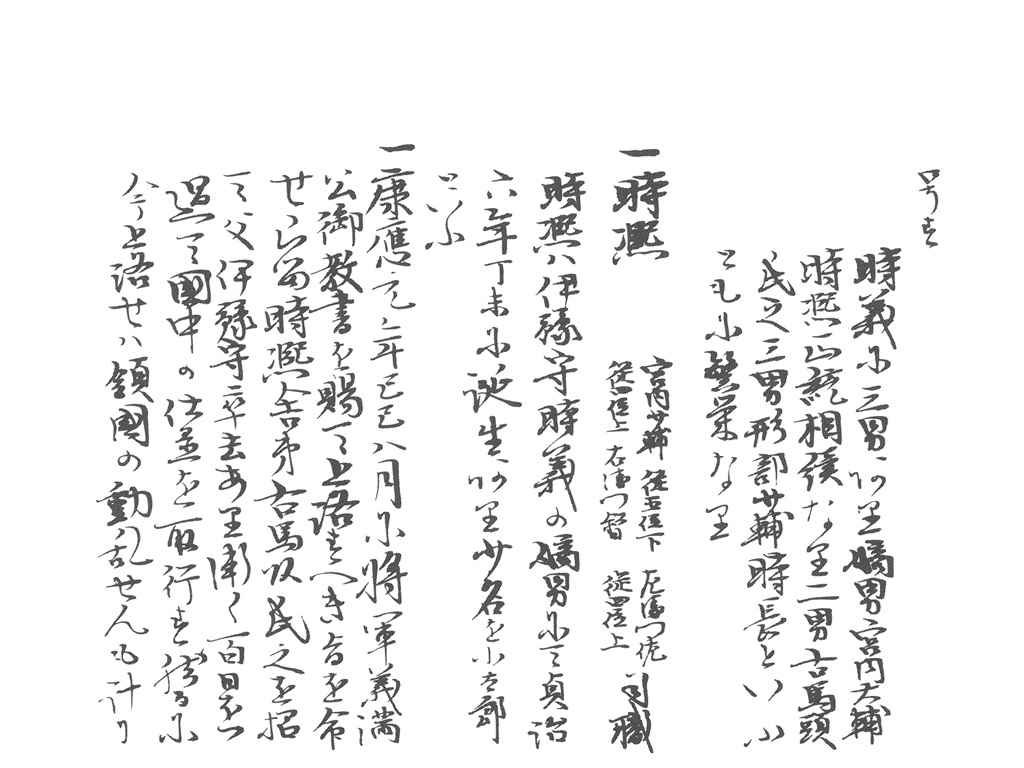 号す
時義に三男有り嫡男宮内大輔
時熈一山総相続なり二男右馬頭
氏之三男形部少輔時長といふ
ともに繁栄なり
一時熈
宮内少輔 従五位下 左衛門佐
従四位上 右衛門督 従四位上
同職
時熈ハ伊豫守時義の嫡男にて貞治
六年丁未に誕生有り少名を小太郎
といふ
一康應元年己巳八月に将軍義満
公御教書を賜て上洛すへき旨を命
せらる留時熈舎弟右馬頭氏之を招
て父伊豫守卒去あり漸く一百日を
過て國中の仕置を取行す然るに
今上洛せハ領國の動乱せんも計り